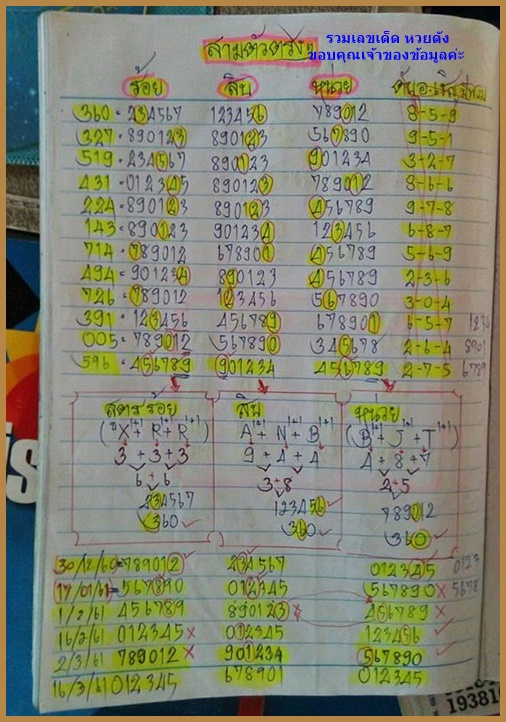 สามตัวตรงๆ
รวมเลขเด็ด หวยดัง
ขอบคุณเจ้าของข้อมูลค่ะ
ร้อย สิบ หน่วย
360 = 234567 123456 789012 8-5-9
327 = 890123 890123 567890 9-5-1
519 = 234567 890123 901234 3-2-7
431 = 012345 890123 789012 8-6-6
224 = 890123 890123 456789 9-7-8
143 = 890123 901234 123456 6-8-7
714 = 789012 678901 456789 5-6-9
494 = 901234 890123 456789 2-3-6
726 = 789012 123456 567890 3-0-4
391 = 123456 456789 678901 6-5-7 1234
005 = 789012 567890 345678 2-6-4 8901
596 = 456789 901234 456789 2-7-5 6789
สูตรร้อย สิบ หน่วย
3+3+3 9+4+4 4+8+7
6+6 3+8 2+5
234567 123456 789012
360 360 360
30/12/60=789012 234567 012345 0123
17/01/61=567890 012345 567890 x 5678
1/2/61 456789 890123 x 456789 x
16/2/61 012345 x 012345 123456
2/3/61 789012 x 901234 567890
16/3/61 012345 678901 012345
19381